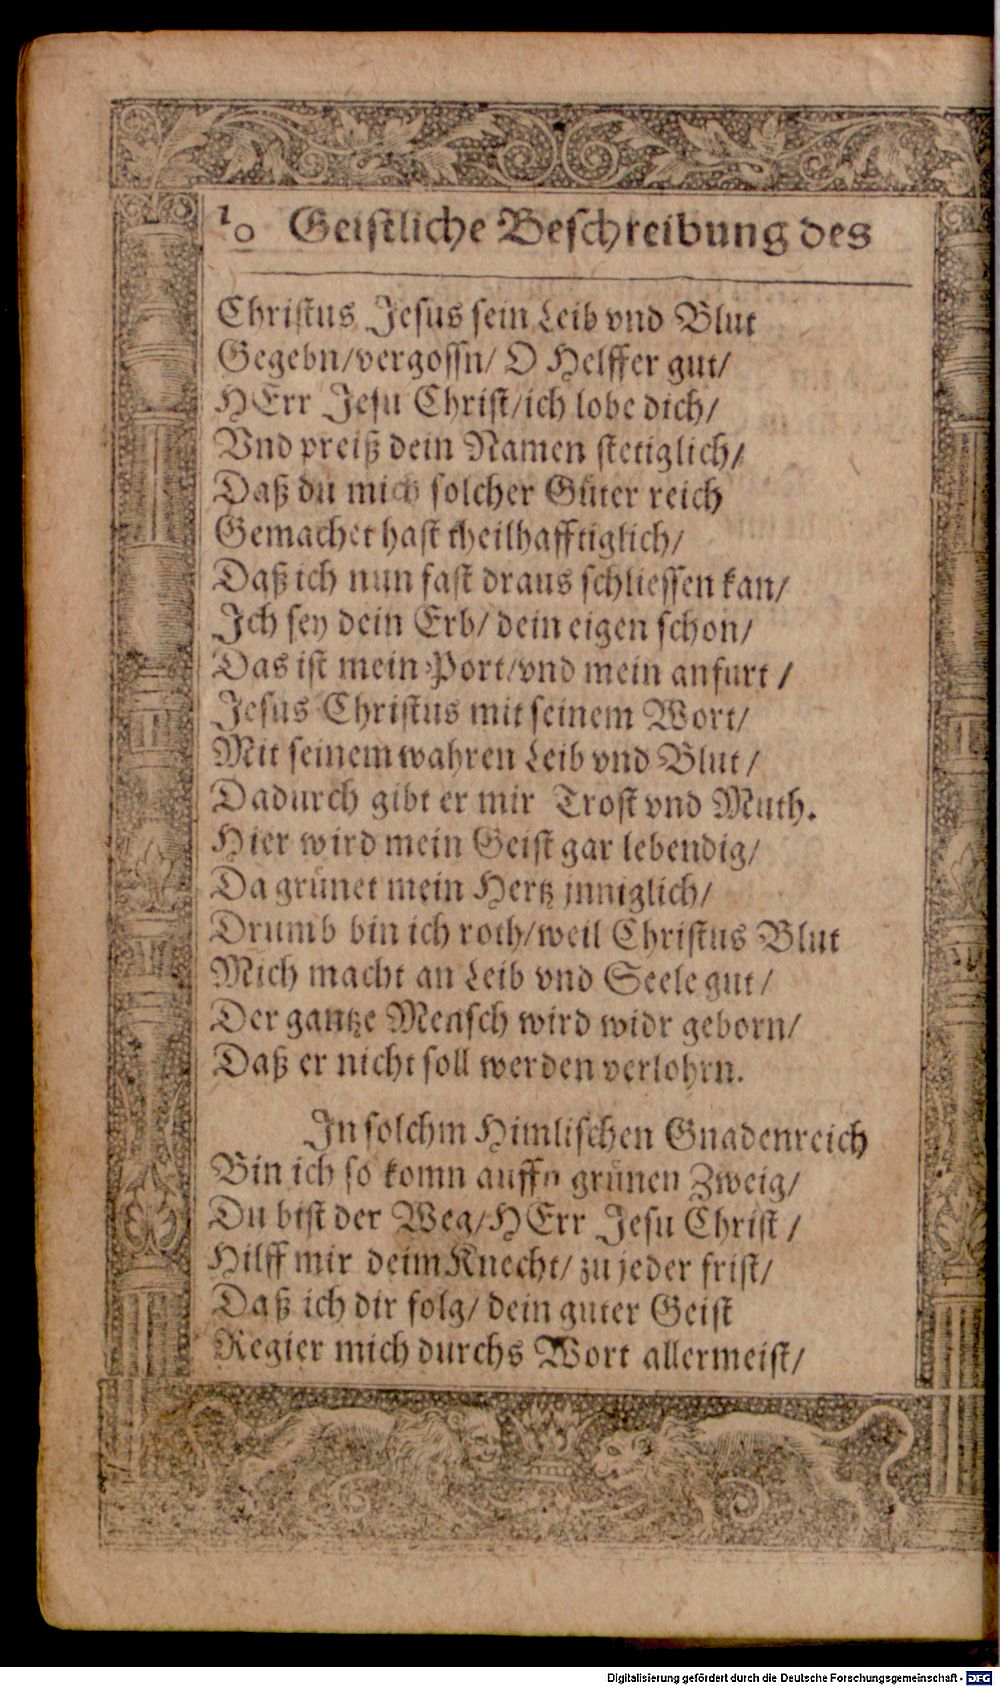 10 Geistliche Beschreibung des
Christus Jesus sein Leib vnd Blut
Gegebn/vergossn/ O Helffer gut/
HErr Jesu Christ/ich lobe dich/
Vnd preiß dein Namen stetiglich/
Daß du mich solcher Güter reich
Gemachet hast theilhafftiglich/
Daß ich nun fast draus schliessen kan/
Ich sey dein Erb/ dein eigen schon/
Das ist mein Port/vnd mein anfurt /
Jesus Christus mit seinem Wort/
Mit seinem wahren Leib vnd Blut /
Dadurch gibt er mir Trost vnd Muth.
Hier wird mein Geist gar lebendig/
Da grünet mein Hertz jnniglich/
Drumb bin ich roth/weil Christus Blut
Mich macht an Leib vnd Seele gut /
Der gantze Mensch wird widr geborn/
Daß er nicht soll werden verlohrn.
In solchm Himlischen Gnadenreich
Bin ich so komn auffn grünen Zweig/
Du bist der Weg/HErr Jesu Christ /
Hilff mir deim Knecht/ zu jeder frist/
Daß ich dir folg/ dein guter Geist
Regier mich durchs Wort allermeist/
Digitalisierung gefördert durch die Deutsche Forschungsgemeinschaft - DFG